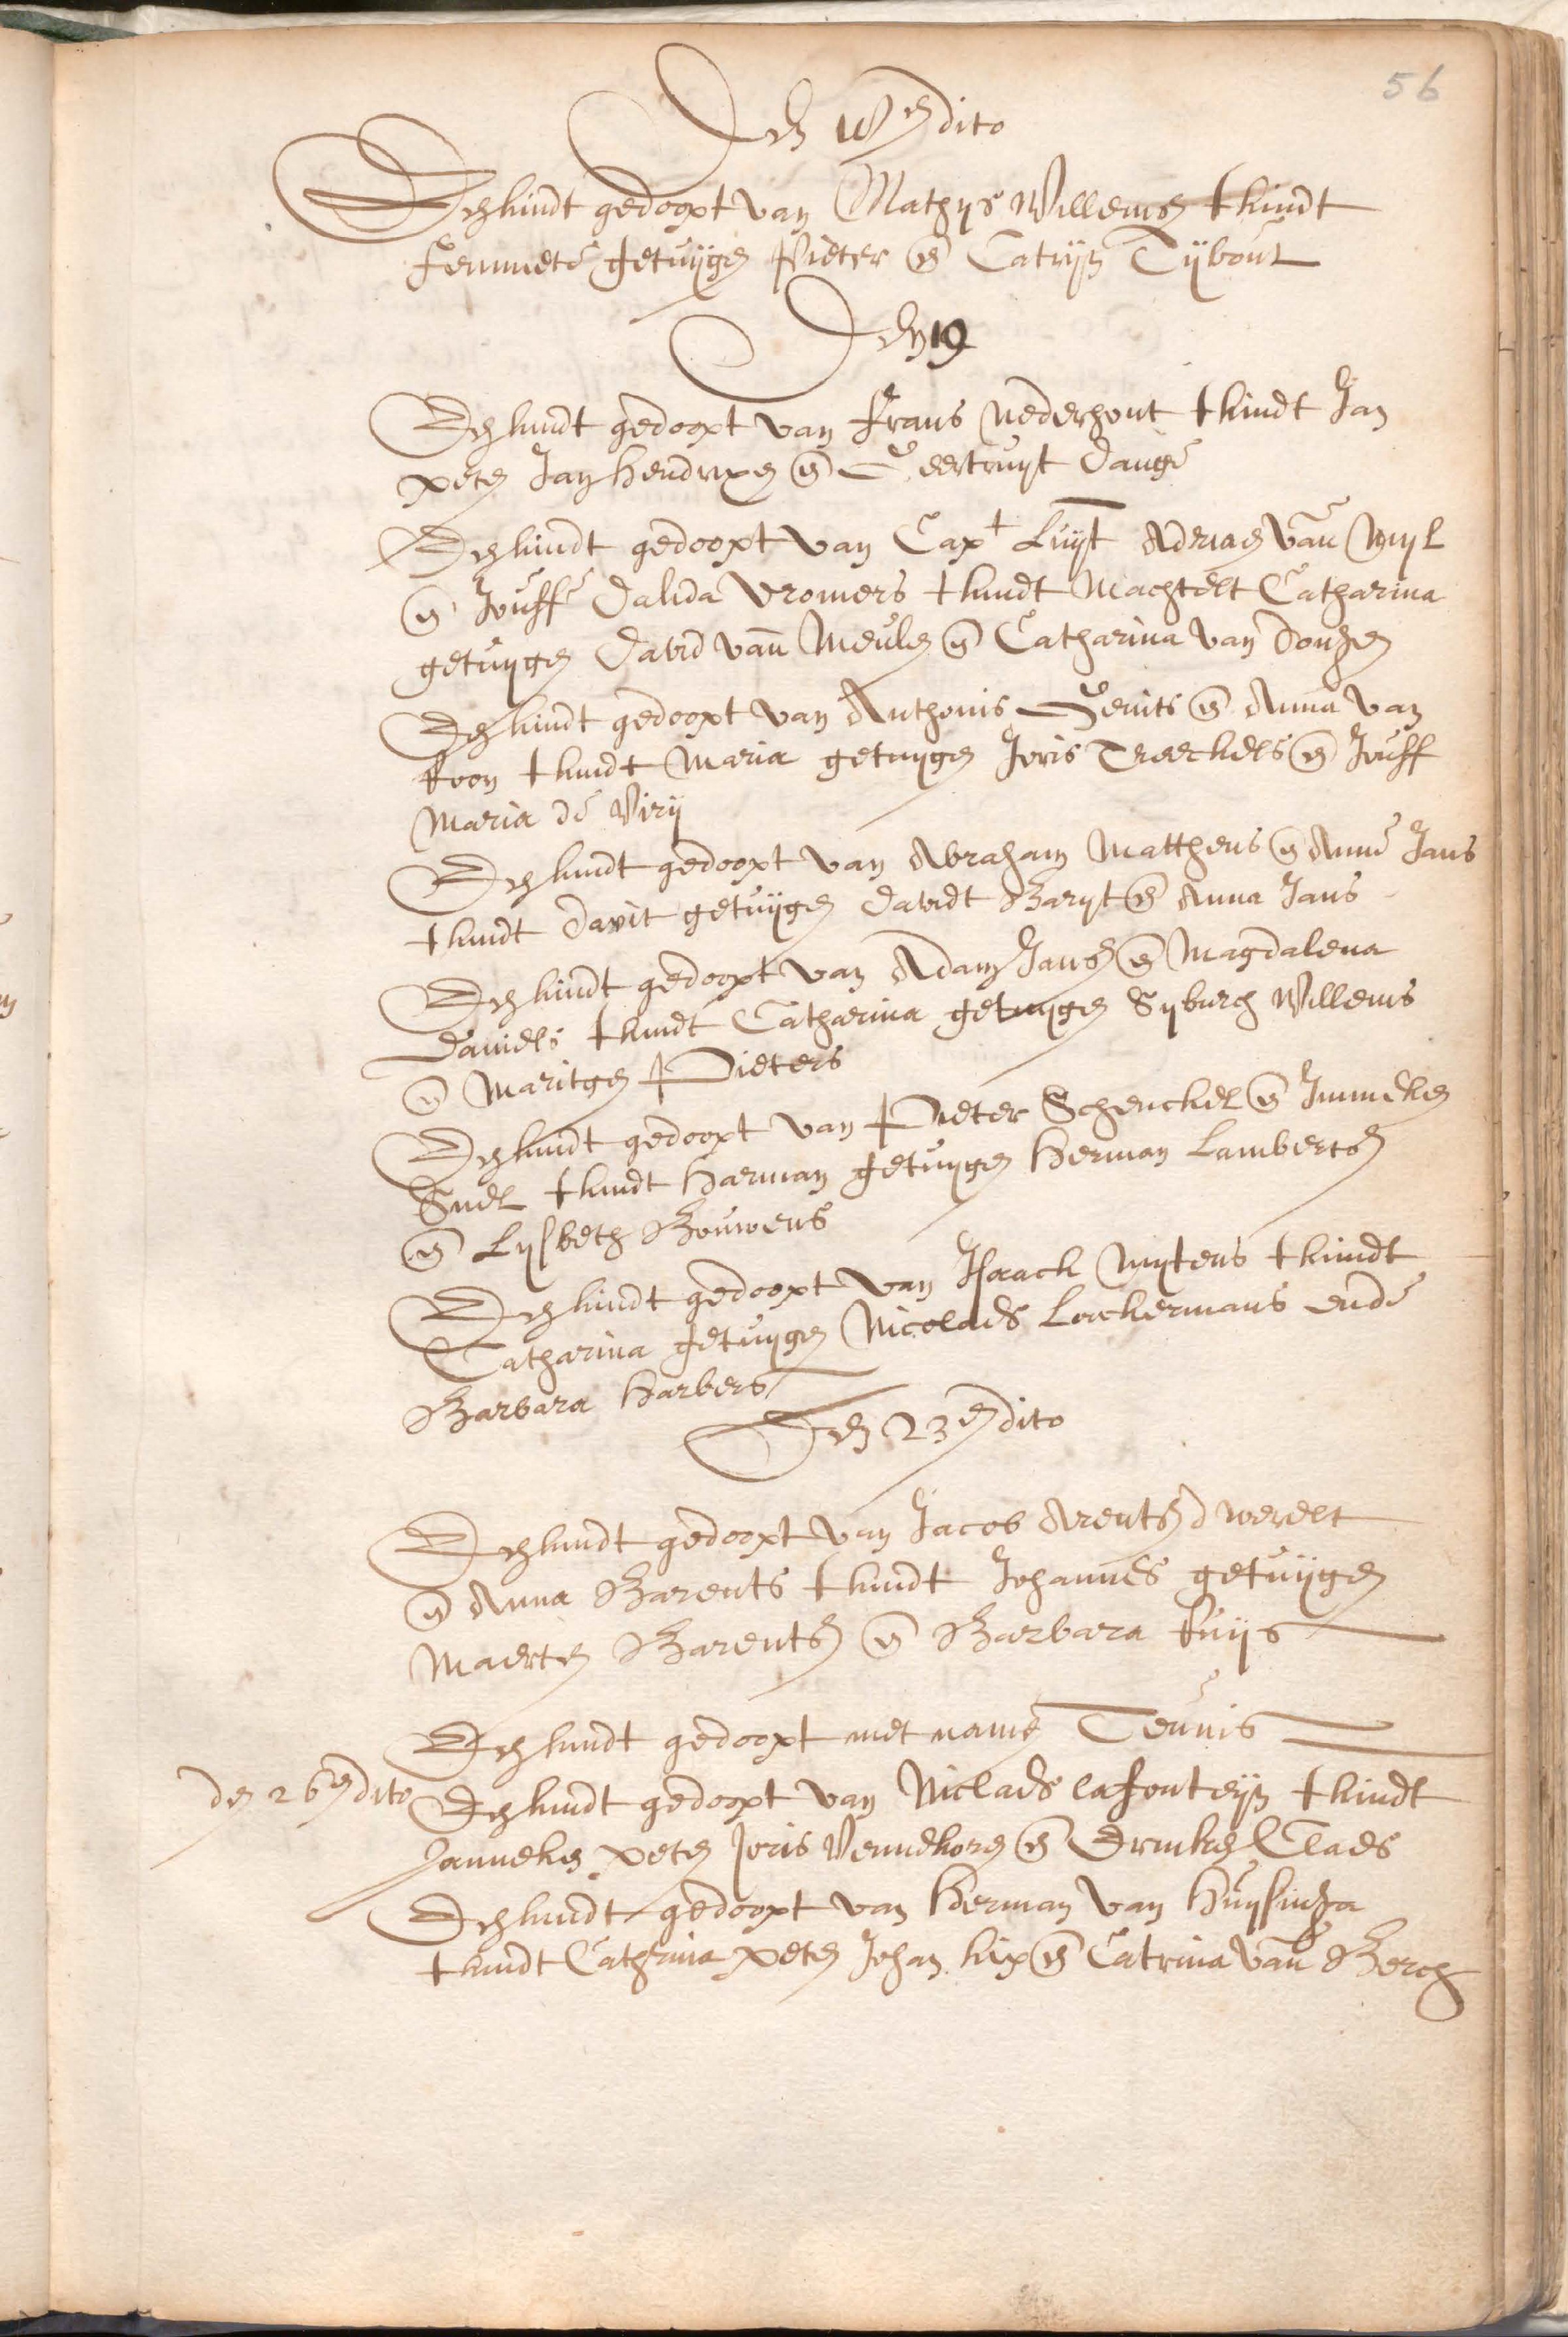 56
Den 18en dito
Een kindt gedoopt van Mathijs Willems tkindt
Femmete getuijgen Pieter en Catrijn Tijbout
Den 19
Een kindt gedoopt van Frans Nederhout tkindt Jan
peten Jan Hendrixen en Geertruijt Dauge
Een kindt gedoopt van Capt Luijt Adriaen van
en Jouffe Dalida Vromers tkindt Machtelt Catharina
getuijgen David van Meulen en Catharina van
Een kindt gedoopt van Anthonis Gerits en Anna van
Roon tkindt Maria getuijgen Joris en Jouff
Maria de Virij
Een kindt gedoopt van Abraham Mattheus en Anne Jans
tkindt Davit getuijgen Davidt Barijt en Anna Jans
Een kindt gedoopt van Adam Jansen en Magdalena
Daniels tkindt Catharina getuijgen Sijburch Willems
en Maritgen Pieters
Een kindt gedoopt van Pieter Schenckel en Immeken
Snel tkindt Harman getuijgen Herman Lambertsen
en Lijsbeth Bouwens
Een kindt gedoopt van Isaack Mijtens tkindt
Catharina getuijgen Nicolaes Lockermans ende
Barbara Harbers
Den 23en dito
Een kindt gedoopt van Jacob Arentsen d werelt
en Anna Barents tkindt Johannes getuijgen
Maerten Barentsen en Barbara Ruijs
Een kindt gedoopt met name Teunis
den 26en dito Een kindt gedoopt van Niclaes lafonteijn tkindt
Janneken peten Joris Vennekoren en Ermken Claes
Een kindt gedoopt van Herman van Huijsinga
tkindt Cathrina peten Johan hix en Catrina van Berch